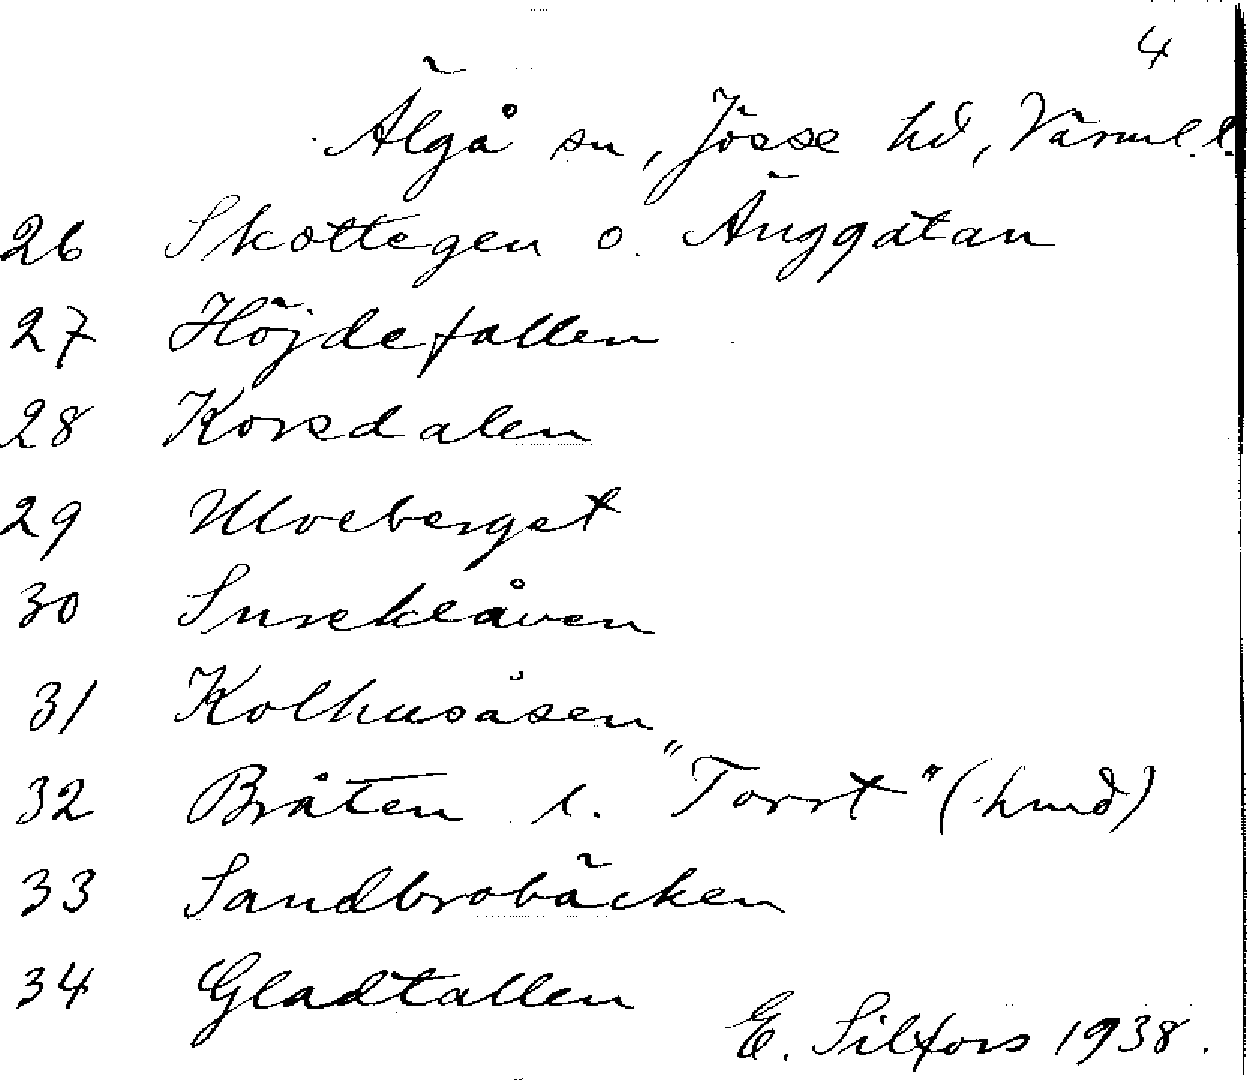 4
Älgå sn, Jösse hd, Värml. l.
26 Skottegen o. Änggatan
27 Höjdefallen
28 Korsdalen
29 Uloeberget
30 Snrekleåven
31 Kolhusåsen
32 Bråten l. "Torrt" (hmd)
33 Sandbrobäcken
34 Gladtallen
E. Silfors 1938.